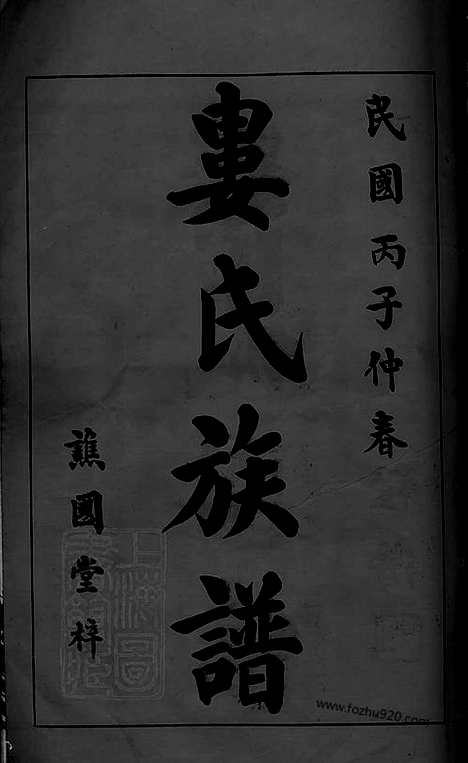 民國丙子仲春
婁氏族譜
譙國堂梓
www.fozhu920.com